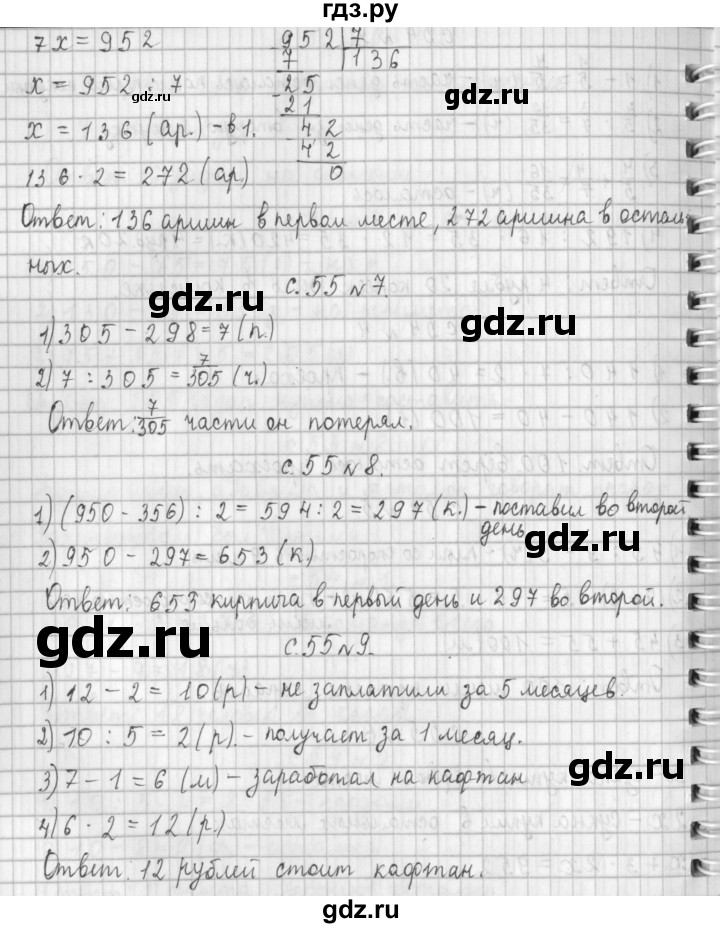 гдз.ру
7х = 952   952 | 7
7   136
х = 952 : 7   25
21
х = 136 (ар.) - в 1.   42
42
136 · 2 = 272 (ар)   0
Ответ: 136 аршин в первом месте, 272 аршина в осталь
ных.
с. 55 №7.
1) 305 - 298 = 7 (п.)
2) 7 : 305 = 7/305 (ч.)
Ответ: 7/305 части он потерял.
с. 55 №8.
1) (950 - 356) : 2 = 594 : 2 = 297 (к.) - поставил во второй
день
2) 950 - 297 = 653 (к)
Ответ: 653 кирпича в первый день и 297 во второй.
с. 55 №9.
1) 12 - 2 = 10 (р) - не заплатили за 5 месяцев.
2) 10 : 5 = 2 (р). - получает за 1 месяц.
3) 7 - 1 = 6 (м) - заработал на кафтан
4) 6 · 2 = 12 (р.)
Ответ: 12 рублей стоит кафтан.
gdz.ru
gdz.ru
gdz.ru
gdz.ru
gdz.ru
gdz.ru
gdz.ru
gdz.ru
gdz.ru
gdz.ru
gdz.ru